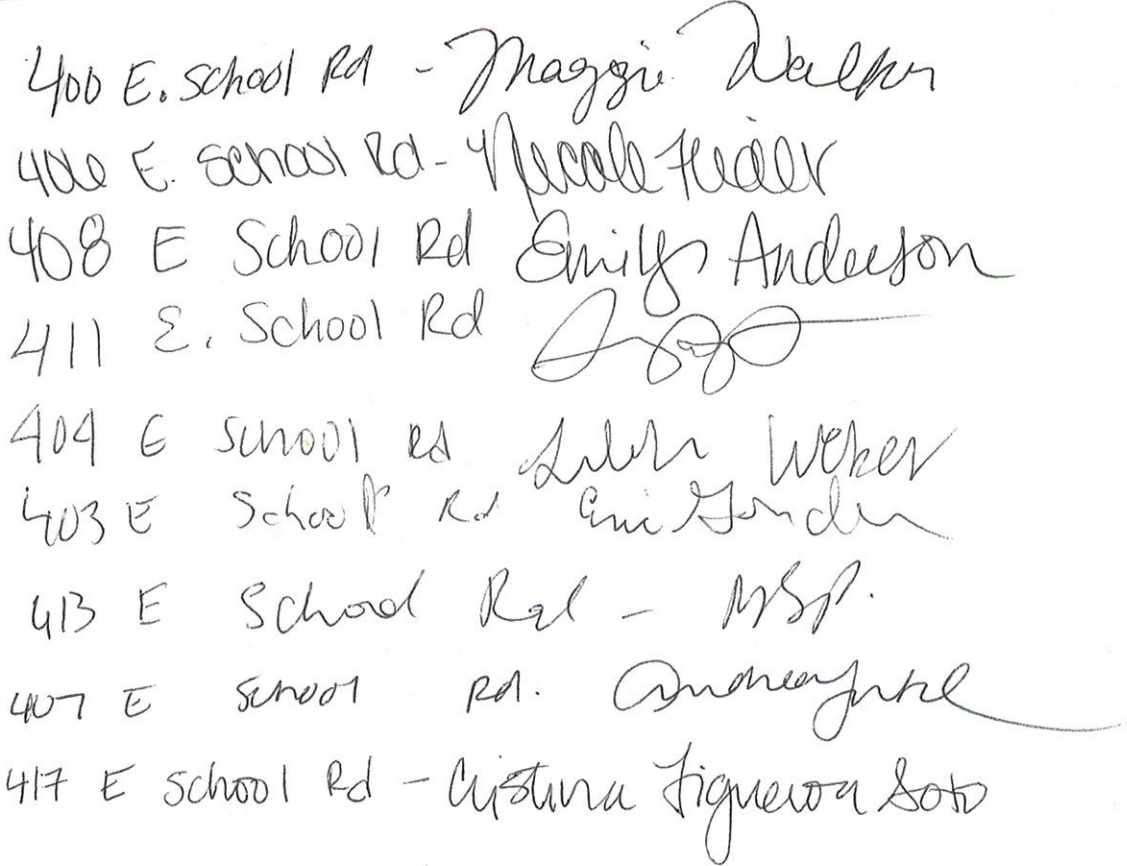 400 E. School Rd - Maggie Walker
406 E. School Rd - Nicole
408 E School Rd Emily Anderson
411 E. School Rd
404 E School Rd Weber
403 E School Rd
413 E School Rd -
407 E School Rd. Andrea
417 E School Rd - Cristina Figueroa Soto